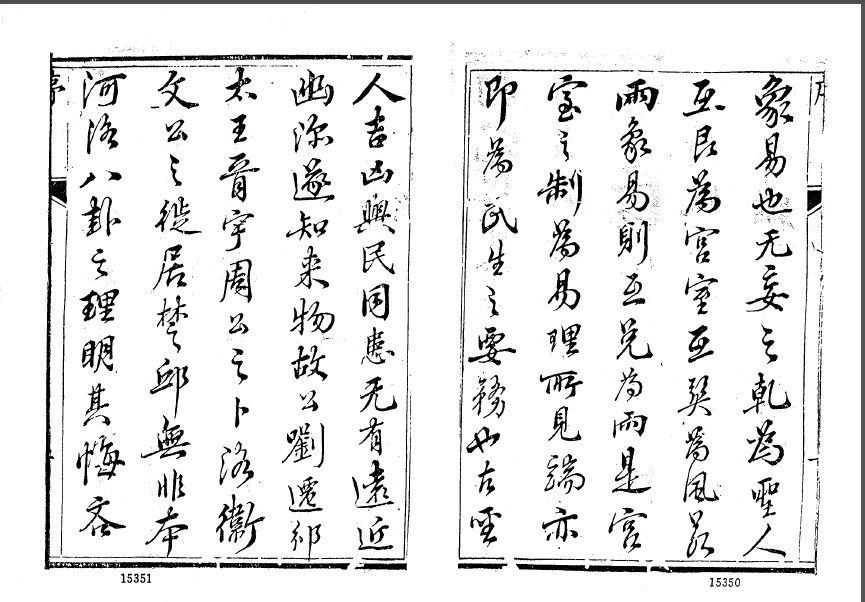 象易也无妄之乾為聖人
互艮為宮室互巽為風若
雨象易則互兌為雨是宮
室之制為易理所見端亦
即為民生之要務也古聖
15350
人吉凶與民同患无有遠近
幽深遂知来物故公劉遷邠
太王胥宇周公之卜洛衛
文公之徙居楚邱無非本
河洛八卦之理明其悔吝
15351